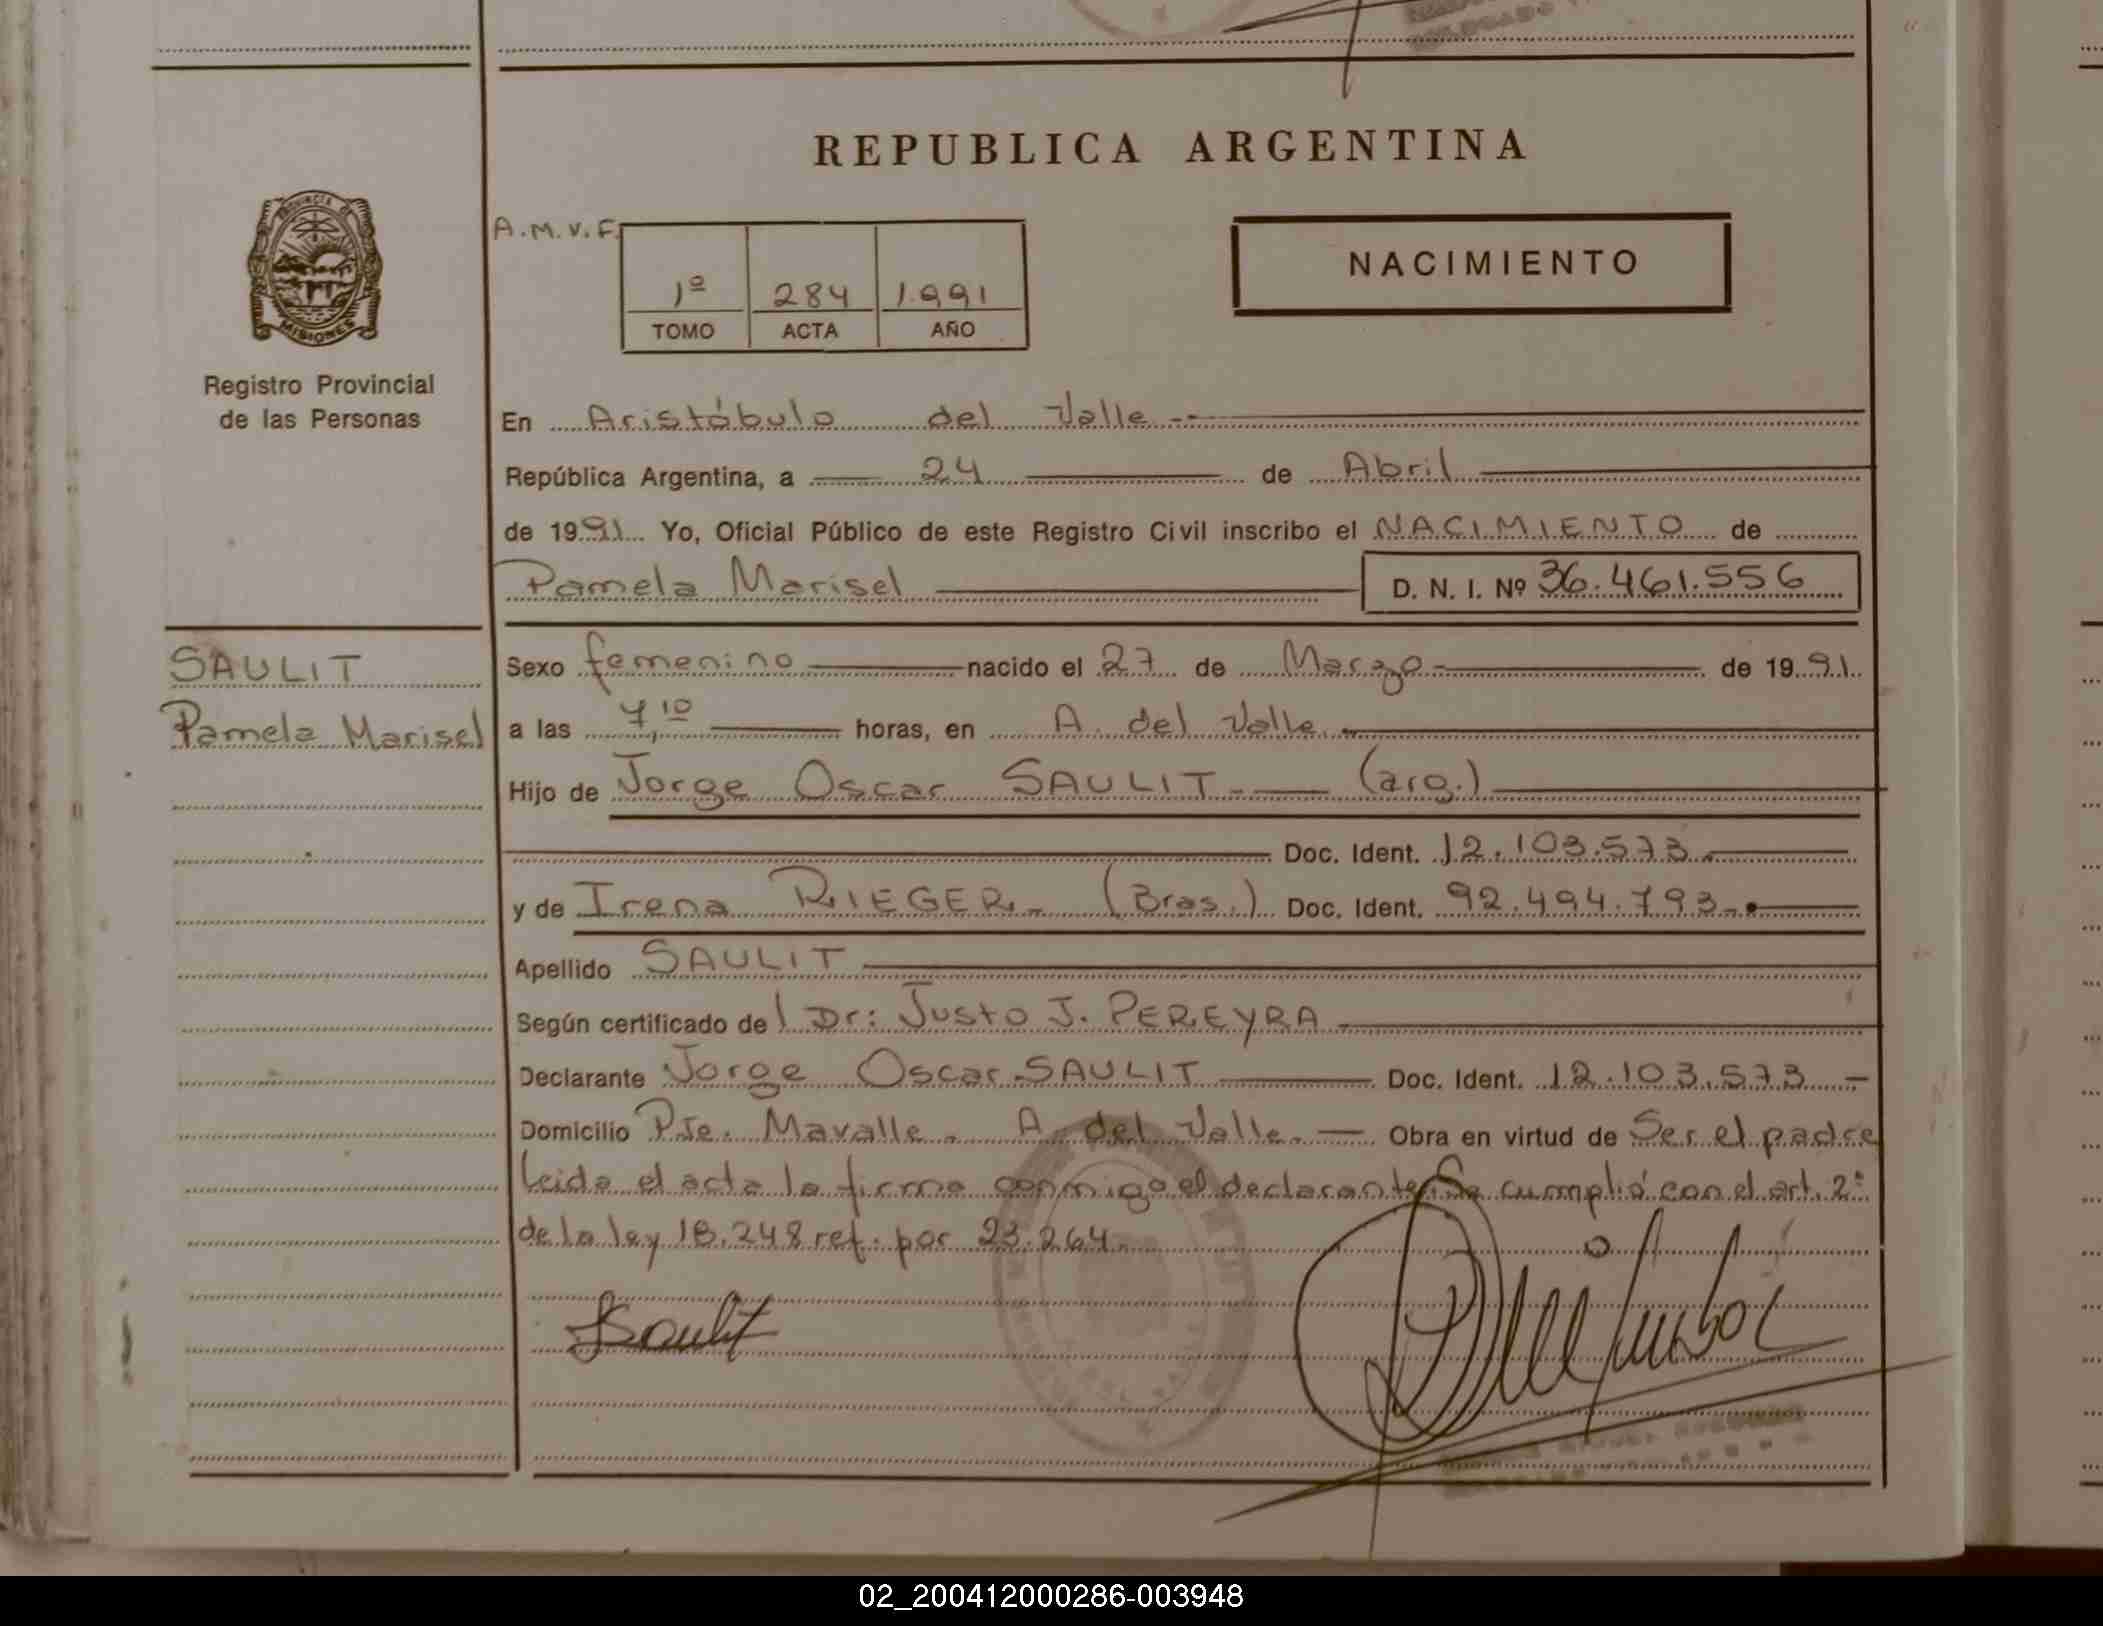 REPUBLICA ARGENTINA
PROVINCIA DE
MISIONES
Registro Provincial
de las Personas
A.M.V.F.
1º 284 1.991
TOMO ACTA AÑO
NACIMIENTO
En Aristóbulo del Valle.-
República Argentina, a 24 de Abril
de 1991 Yo, Oficial Público de este Registro Civil inscribo el NACIMIENTO de
Pamela Marisel D. N. I. Nº 36.461.556
SAULIT
Pamela Marisel
Sexo femenino nacido el 27 de Marzo de 1991
a las 4,10 horas, en A. del Valle.
Hijo de Jorge Oscar SAULIT.- (arg.)
Doc. Ident. 12.103.573.
y de Irena RIEGER.- (Bras.) Doc. Ident. 92.494.793.-
Apellido SAULIT
Según certificado del Dr: Justo J. PEREYRA
Declarante Jorge Oscar SAULIT Doc. Ident. 12.103.573 -
Domicilio Pje. Mavalle. A. del Valle. Obra en virtud de Ser el padre
leida el acta la firma conmigo el declarante Se cumplió con el art. 2º
de la ley 18.248 ref. por 23.264.-
JSaulit
02_200412000286-003948